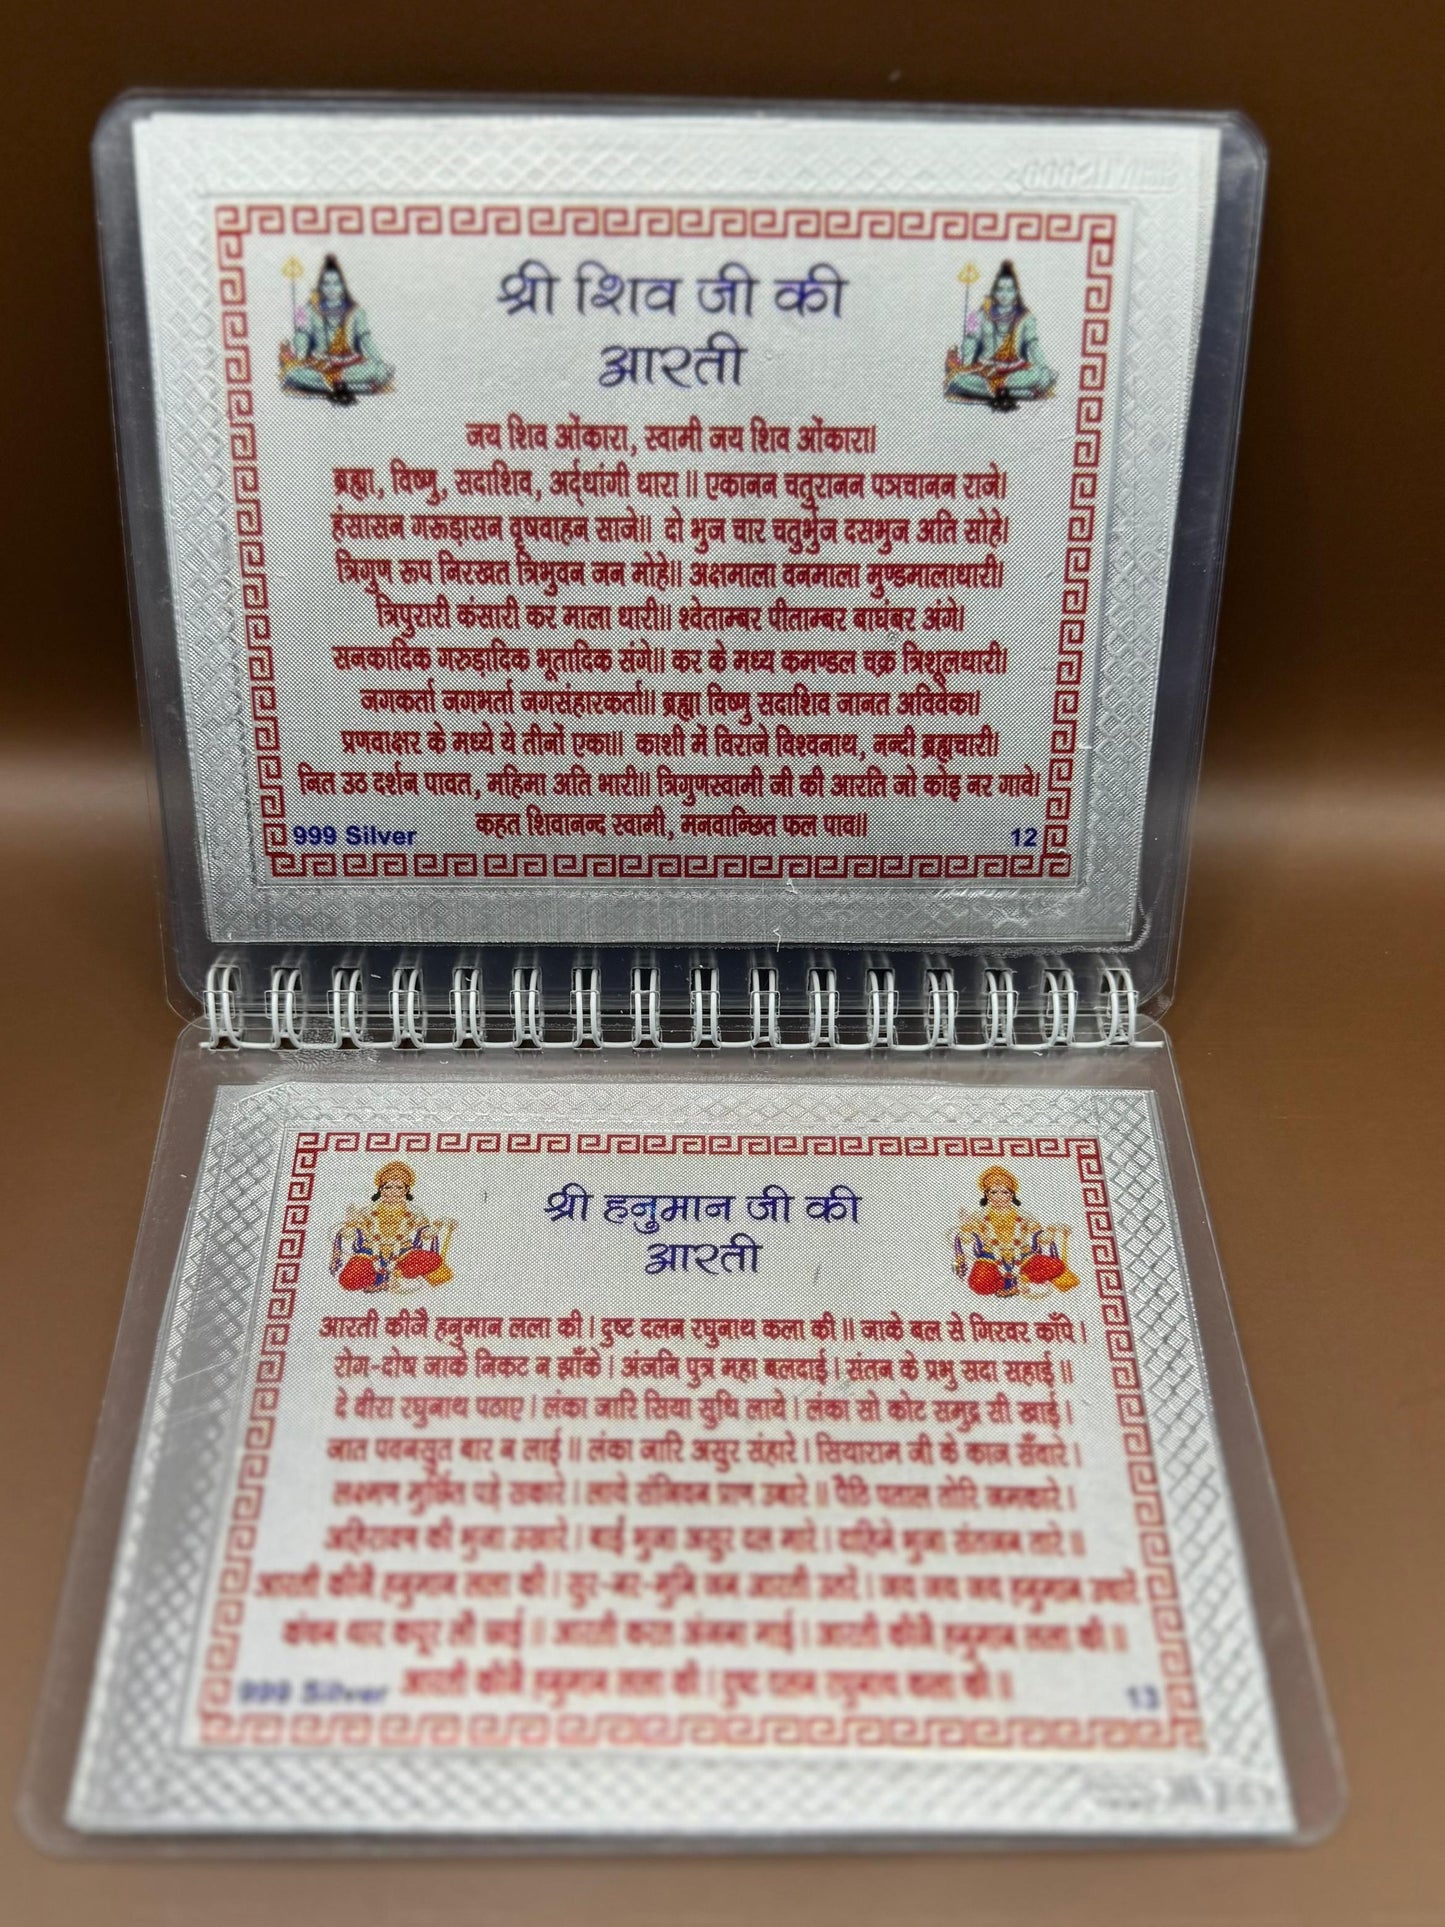 श्री शिव जी की
आरती
जय शिव ओंकारा, स्वामी जय शिव ओंकारा।
ब्रह्मा, विष्णु, सदाशिव, अर्द्धांगी धारा ॥ एकानन चतुरानन पञचानन राजे।
हंसासन गरूड़ासन वृषवाहन साजे॥ दो भुज चार चतुर्भुज दसभुज अति सोहे।
त्रिगुण रूप निरखत त्रिभुवन जन मोहे॥ अक्षमाला वनमाला मुण्डमालाधारी।
त्रिपुरारी कंसारी कर माला धारी॥ श्वेताम्बर पीताम्बर बाघंबर अंगे।
सनकादिक गरुड़ादिक भूतादिक संगे॥ कर के मध्य कमण्डल चक्र त्रिशूलधारी।
जगकर्ता जगभर्ता जगसंहारकर्ता॥ ब्रह्मा विष्णु सदाशिव जानत अविवेका।
प्रणवाक्षर के मध्ये ये तीनों एका॥ काशी में विराजे विश्वनाथ, नन्दी ब्रह्मचारी।
नित उठ दर्शन पावत, महिमा अति भारी॥ त्रिगुणस्वामी जी की आरति जो कोइ नर गावे।
कहत शिवानन्द स्वामी, मनवान्छित फल पाव॥
999 Silver 12
श्री हनुमान जी की
आरती
आरती कीजै हनुमान लला की। दुष्ट दलन रघुनाथ कला की॥ जाके बल से गिरवर काँपे।
रोग-दोष जाके निकट न झाँके। अंजनि पुत्र महा बलदाई। संतन के प्रभु सदा सहाई॥
दे वीरा रघुनाथ पठाए। लंका जारि सिया सुधि लाये। लंका सो कोट समुद्र सी खाई।
जात पवनसुत बार न लाई॥ लंका जारि असुर संहारे। सियाराम जी के काज सँवारे।
लक्ष्मण मुर्छित पड़े सकारे। लाये संजिवन प्राण उबारे॥ पैठि पताल तोरि जमकारे।
अहिरावण की भुजा उखारे। बाई भुजा असुर दल मारे। दाहिने भुजा संतजन तारे॥
आरती कीजै हनुमान लला की। सुर-नर-मुनि जन आरती उतारे। जय जय जय हनुमान उचारे
कंचन थार कपूर लौ छाई॥ आरती करत अंजना माई। आरती कीजै हनुमान लला की॥
आरती कीजै हनुमान लला की। दुष्ट दलन रघुनाथ कला की॥
999 Silver 13